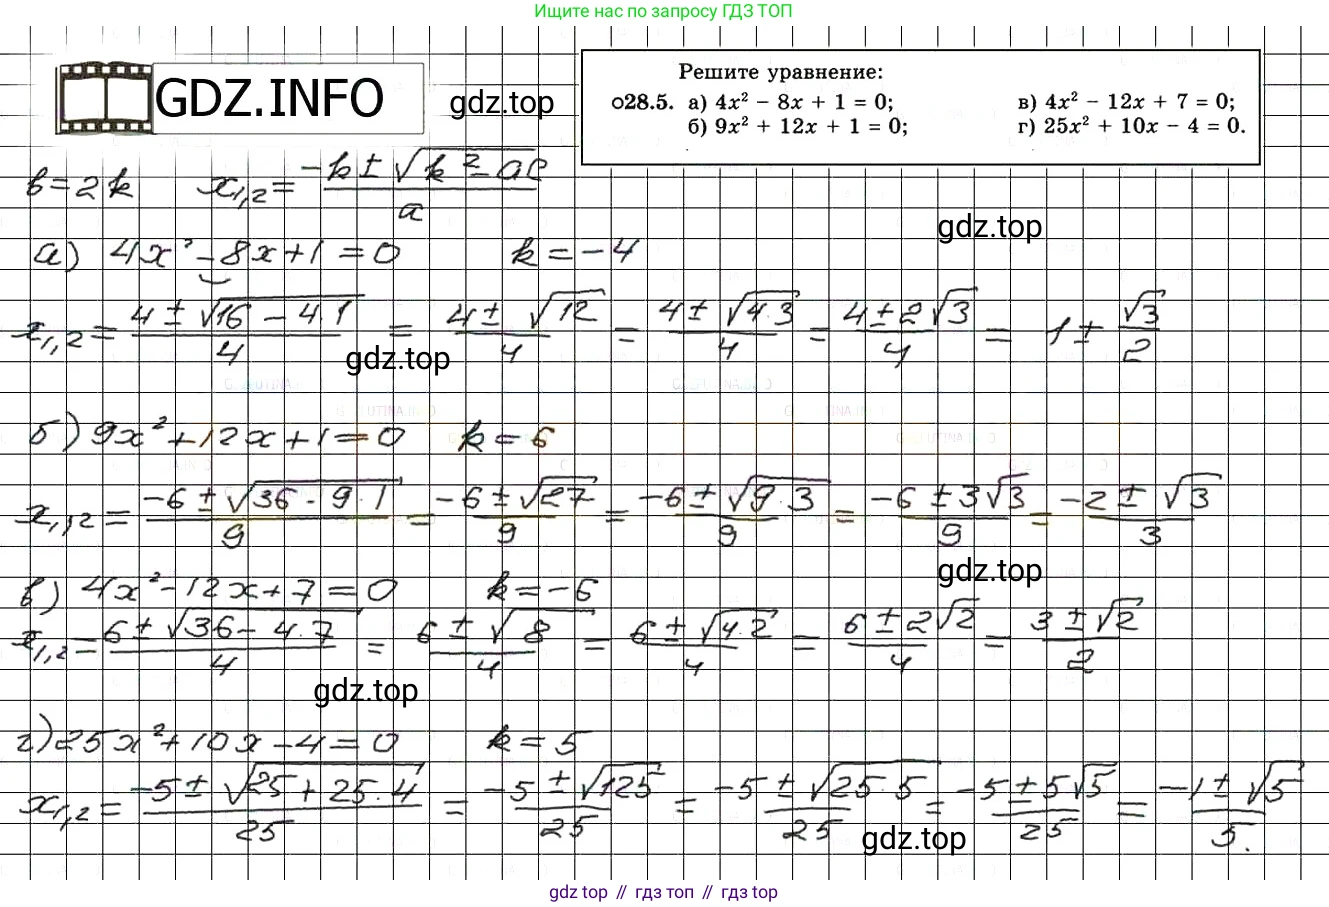 Ищите нас по запросу ГДЗ ТОП
GDZ.INFO
gdz.top
Решите уравнение:
о28.5. а) 4x² − 8x + 1 = 0; в) 4x² − 12x + 7 = 0;
б) 9x² + 12x + 1 = 0; г) 25x² + 10x − 4 = 0.
в = 2k x₁,₂ = (−k ± √(k² − ac))/a
gdz.top
а) 4x² − 8x + 1 = 0 k = −4
x₁,₂ = (4 ± √(16 − 4·1))/4 = (4 ± √12)/4 = (4 ± √(4·3))/4 = (4 ± 2√3)/4 = 1 ± √3/2
gdz.top
б) 9x² + 12x + 1 = 0 k = 6
x₁,₂ = (−6 ± √(36 − 9·1))/9 = (−6 ± √27)/9 = (−6 ± √(9·3))/9 = (−6 ± 3√3)/9 = (−2 ± √3)/3
gdz.top
в) 4x² − 12x + 7 = 0 k = −6
x₁,₂ = (6 ± √(36 − 4·7))/4 = (6 ± √8)/4 = (6 ± √(4·2))/4 = (6 ± 2√2)/4 = (3 ± √2)/2
gdz.top
г) 25x² + 10x − 4 = 0 k = 5
x₁,₂ = (−5 ± √(25 + 25·4))/25 = (−5 ± √125)/25 = (−5 ± √(25·5))/25 = (−5 ± 5√5)/25 = (−1 ± √5)/5.
gdz.top
gdz top // гдз топ // гдз top